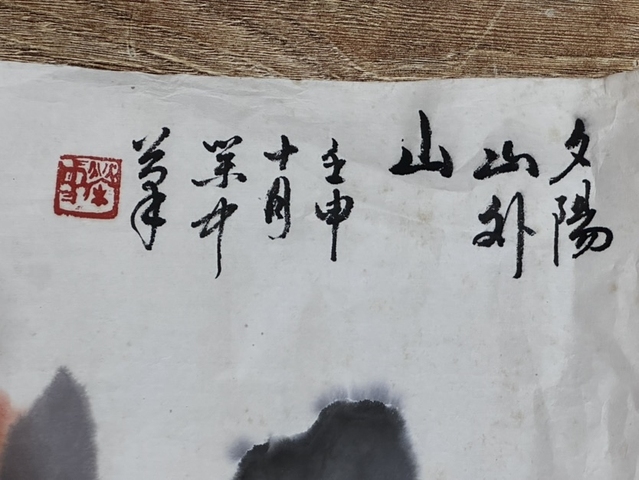 夕陽
山外
山
壬申
十月
榮中
筆